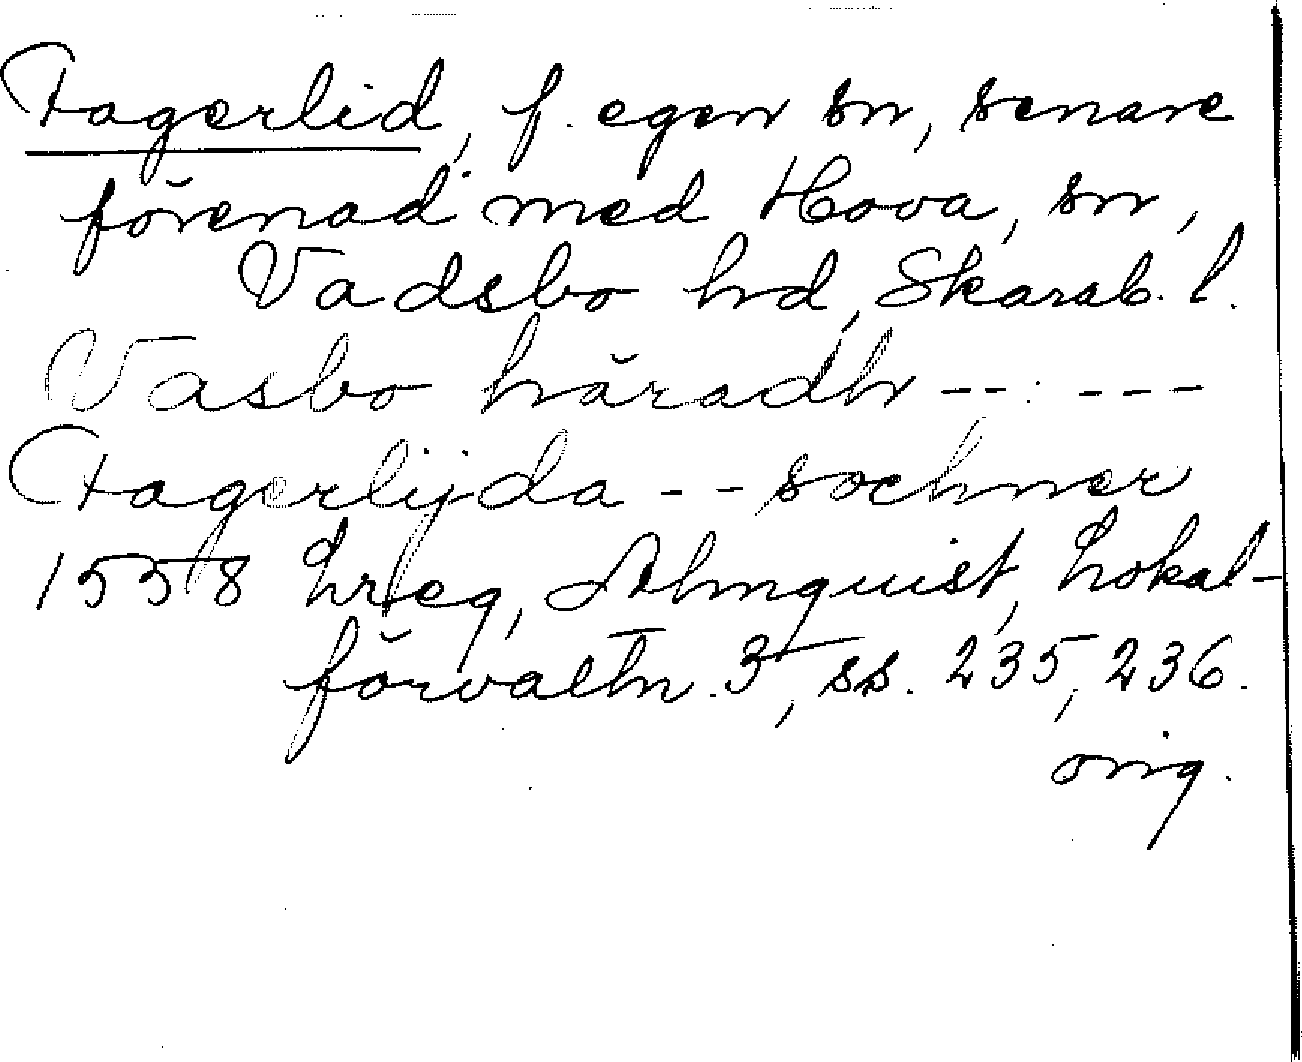 Fagerlid, f. egen sn, senare
förenad med Hova, sn,
Vadsbo hd, Skarab. l.
Vasbo häradh -- : ---
Fagerlijda -- sochner
1558 hreg, Almquist, Lokal-
förvaltn. 3, ss. 235, 236.
orig.